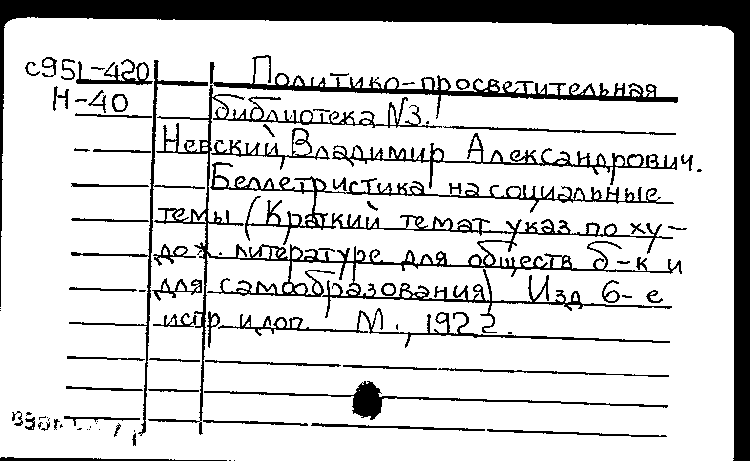 с951-420 Политико-просветительная
Н-40 библиотека N3.
Невский, Владимир Александрович.
Беллетристика на социальные
темы (Краткий темат указ. по ху-
дож. литературе для обществ б-к и
для самообразования) Изд 6-е
испр и доп. М., 1922.